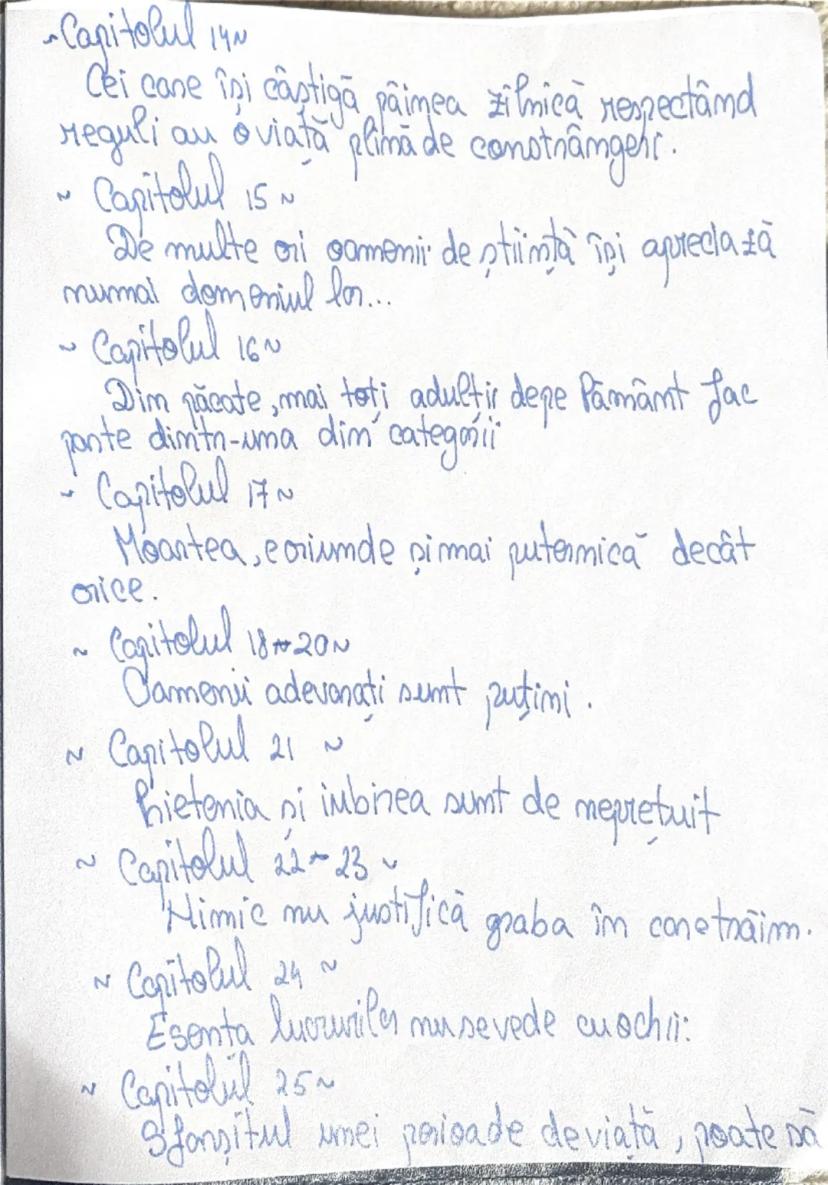 ~Capitolul 14~
Cei care își câștigă pâinea zilnică respectând
reguli au o viață plină de constrângeri.
~ Capitolul 15 ~
De multe ori oamenii de știință își apreciază
numai domeniul lor...
~ Capitolul 16 ~
Din păcate, mai toți adulții depe Pământ fac
parte dintr-una din categorii
~ Capitolul 17 ~
Moartea, e oriunde și mai puternică decât
orice.
~ Capitolul 18~20~
Oamenii adevarați sunt puțini.
~ Capitolul 21 ~
Prietenia și iubirea sunt de neprețuit
~ Capitolul 22~23 ~
Nimic nu justifică graba în care trăim.
~ Capitolul 24 ~
Esența lucrurilor nu se vede cu ochii:
~ Capitolul 25 ~
Sfarșitul unei perioade de viață, poate să